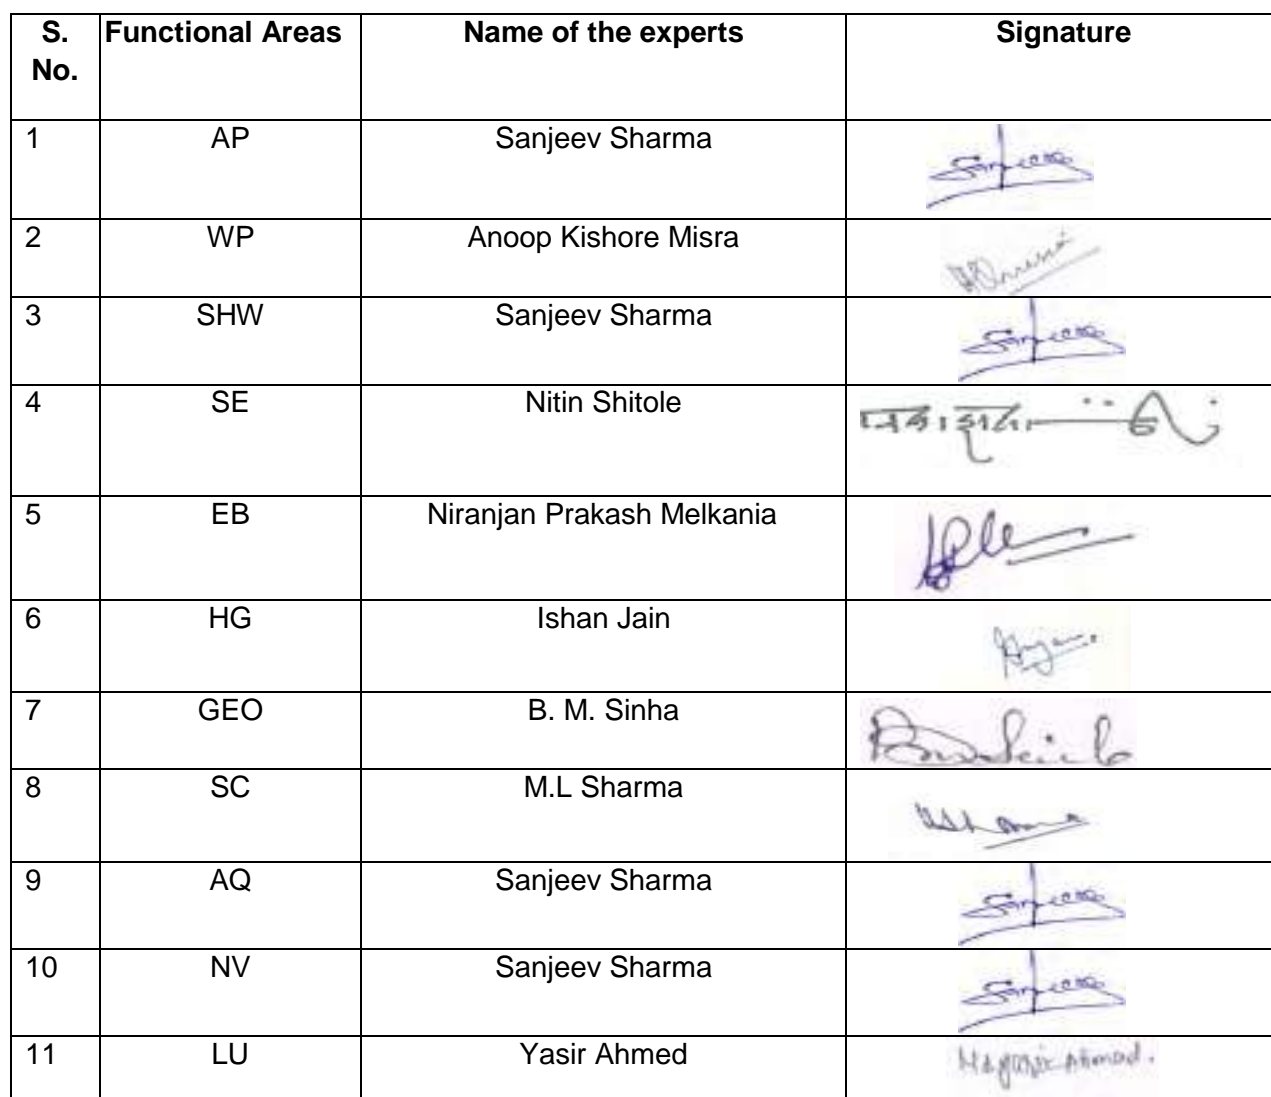 S. No. Functional Areas Name of the experts Signature
1 AP Sanjeev Sharma Sanjeev
2 WP Anoop Kishore Misra
3 SHW Sanjeev Sharma Sanjeev
4 SE Nitin Shitole
5 EB Niranjan Prakash Melkania
6 HG Ishan Jain
7 GEO B. M. Sinha
8 SC M.L Sharma
9 AQ Sanjeev Sharma Sanjeev
10 NV Sanjeev Sharma Sanjeev
11 LU Yasir Ahmed